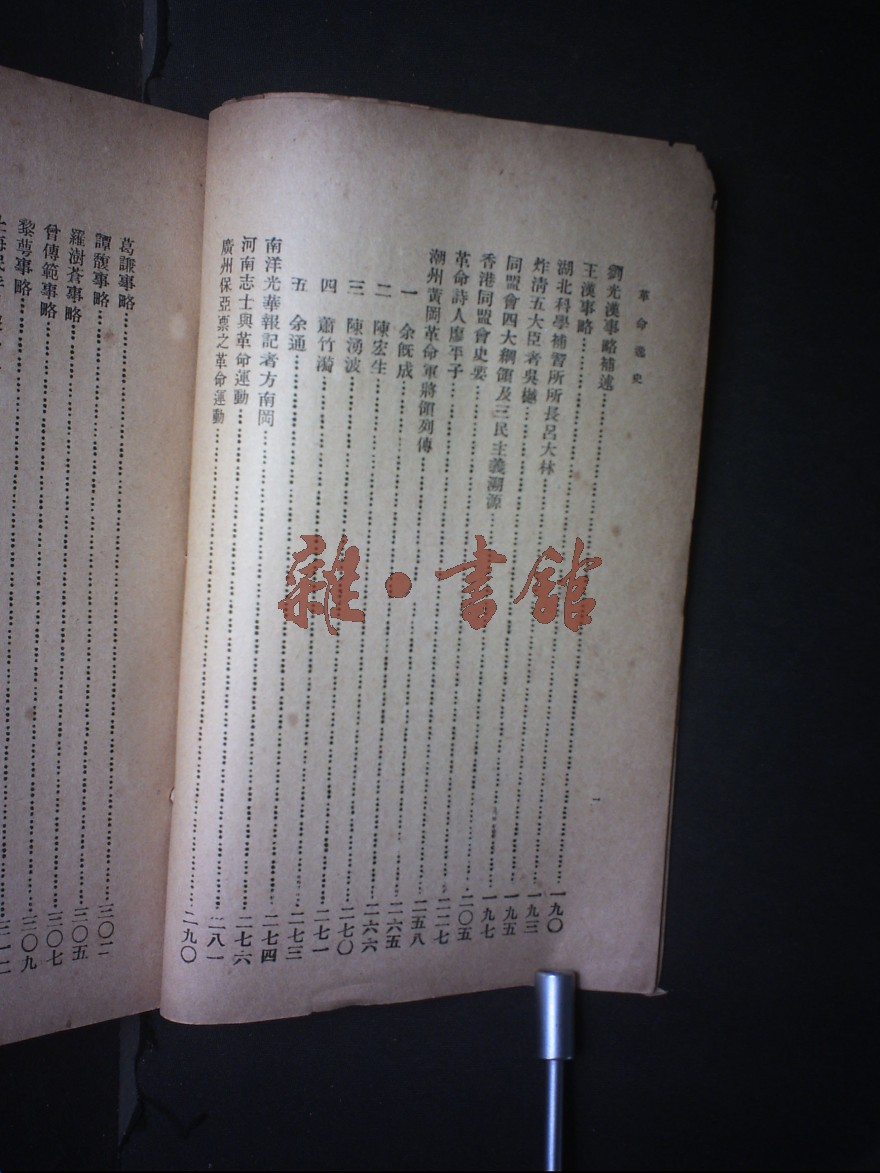 革命逸史
劉光漢事略補述……一九〇
王漢事略……一九三
湖北科學補習所所長呂大林……一九五
炸清五大臣者吳樾……一九七
同盟會四大綱領及三民主義溯源……二〇五
香港同盟會史要……二二七
革命詩人廖平子……二五八
潮州黃岡革命軍將領列傳……二六五
一 余旣成……二六六
二 陳宏生……二七〇
三 陳湧波……二七一
四 蕭竹漪……二七三
五 余通……二七四
南洋光華報記者方南岡……二七六
河南志士與革命運動……二八一
廣州保亞票之革命運動……二九〇
葛謙事略……三〇二
譚馥事略……三〇五
羅樹蒼事略……三〇七
曾傳範事略……三〇九
黎萼事略……三一二
雜·書館